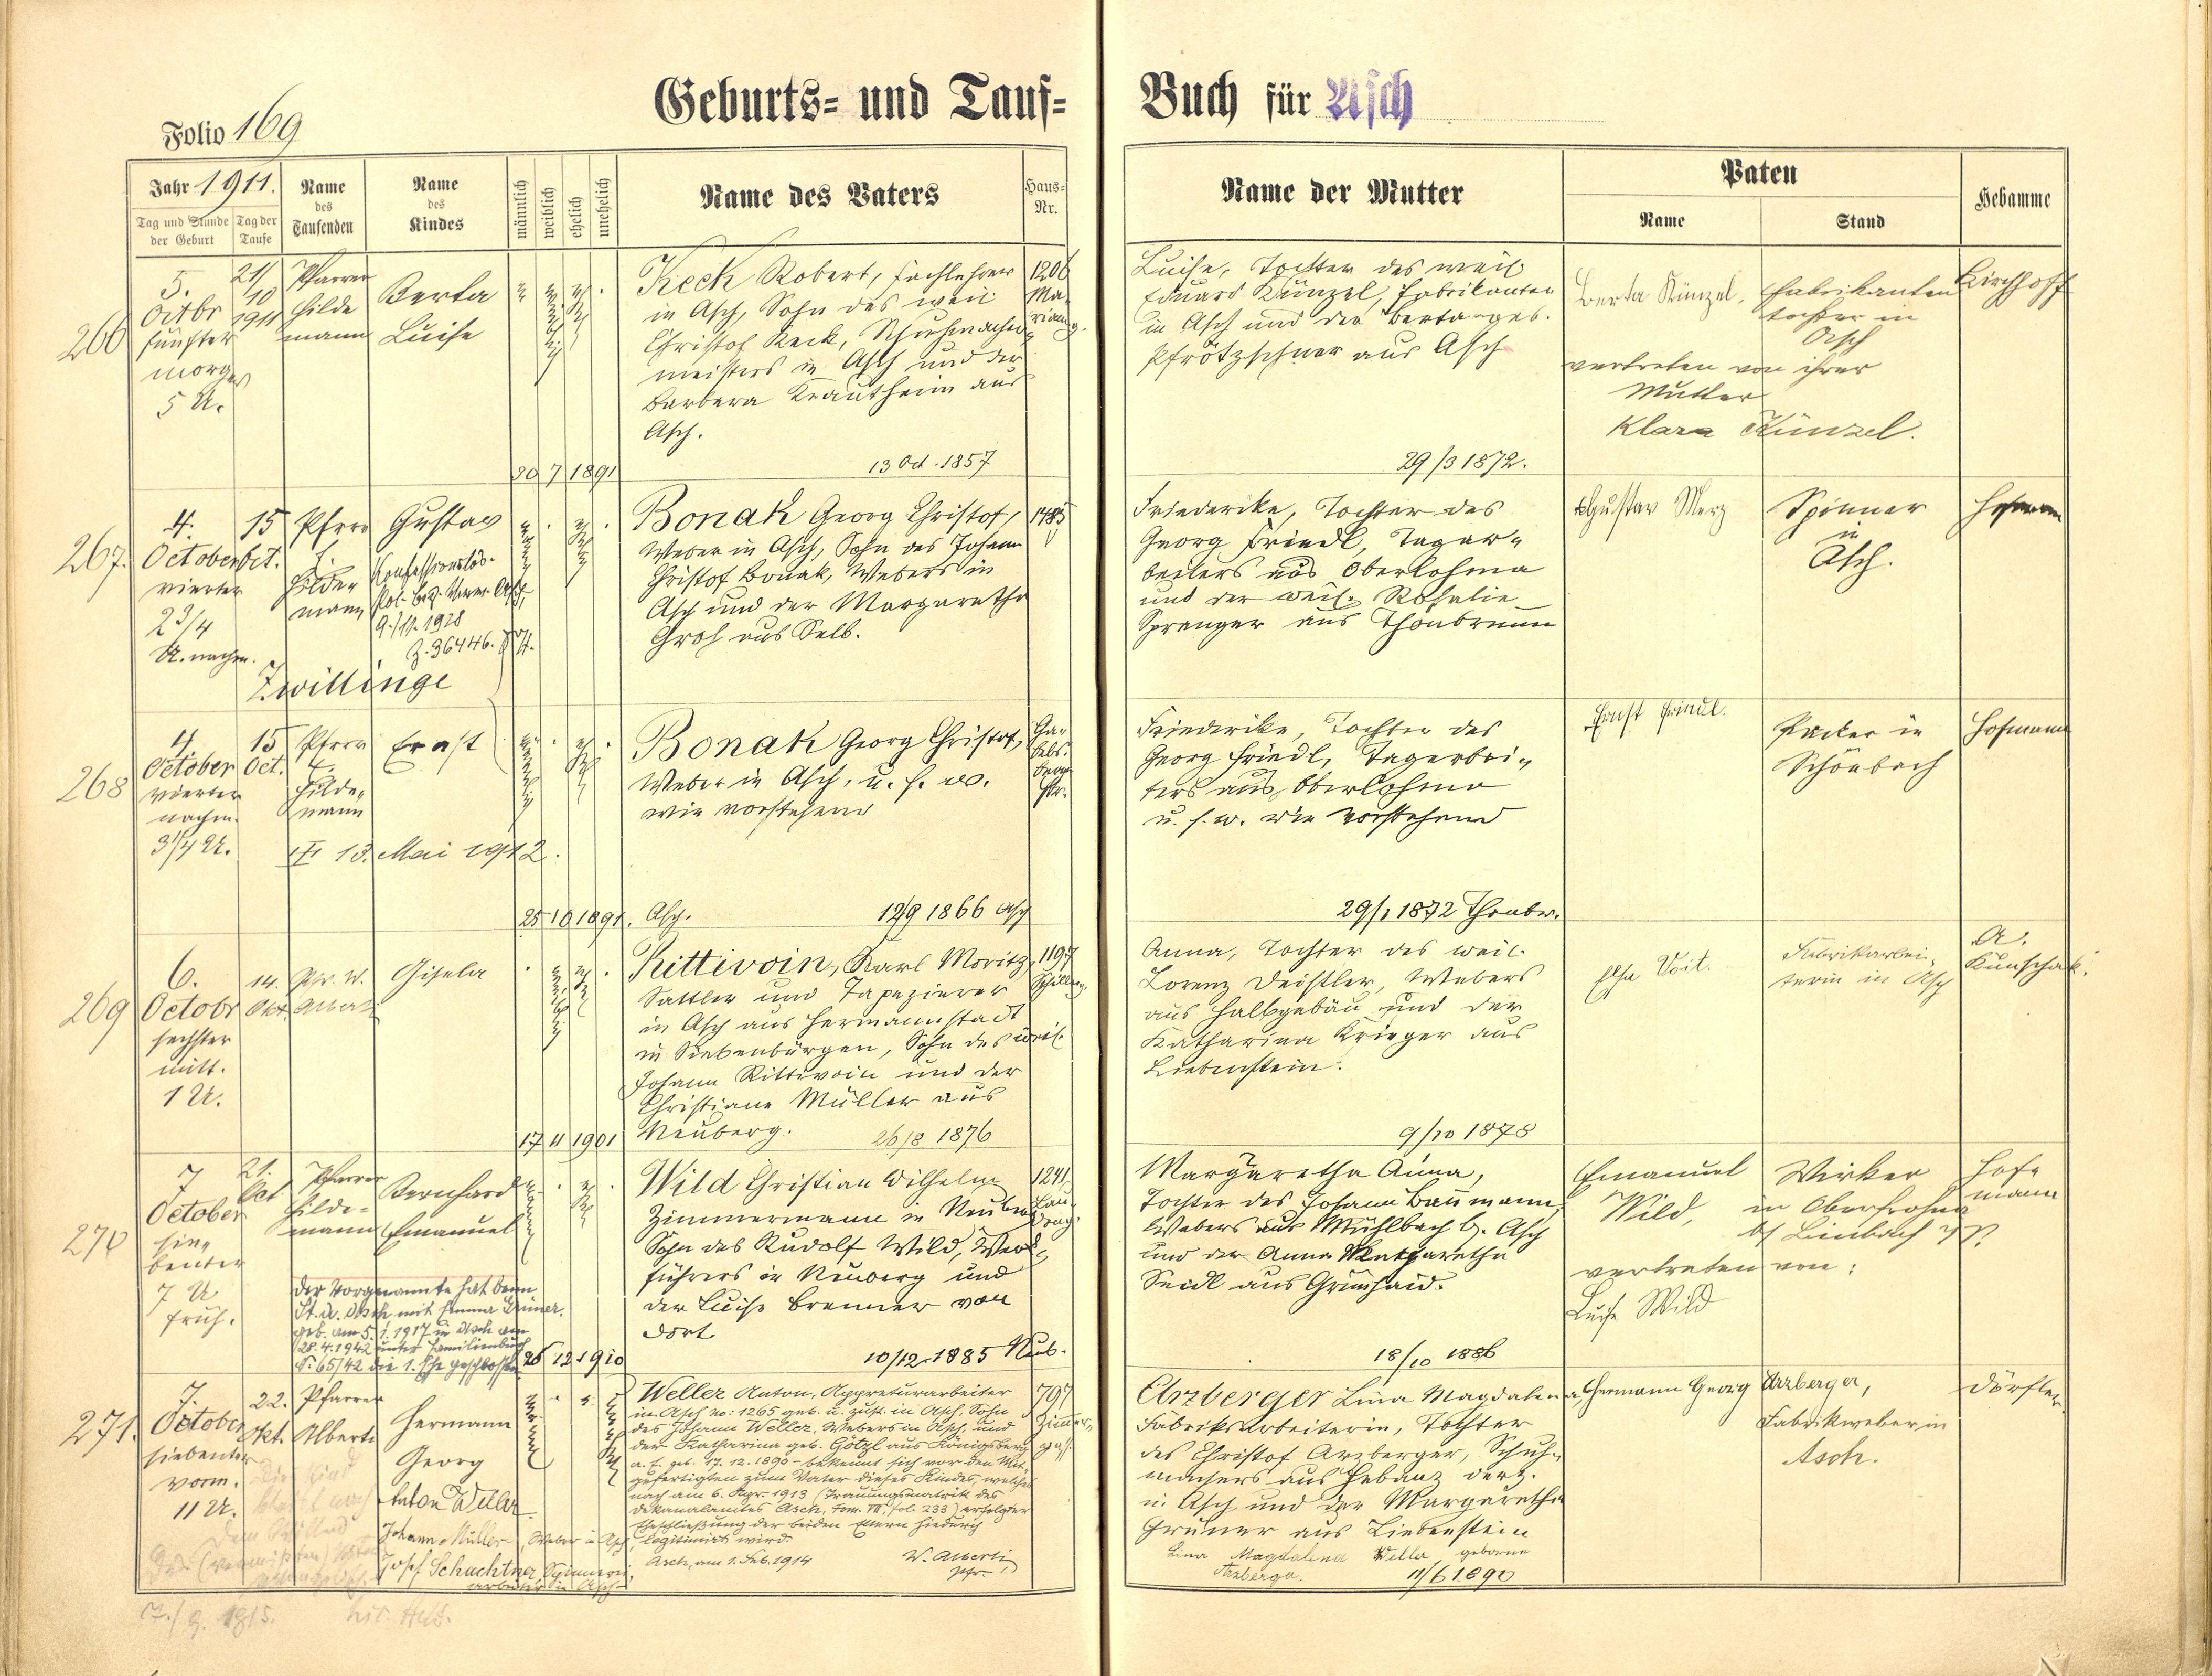 Geburts- und Tauf-
Buch für Asch
Folio 169
Jahr 1911.
Tag und Stunde der Geburt
Tag der Taufe
Name des Taufenden
Name des Kindes
männlich
weiblich
ehelich
unehelich
Name des Vaters
Haus-Nr.
Name der Mutter
Paten
Name
Stand
Hebamme
266
5.
Octbr
fünfter
morgs
5 U.
21/
10
1911
Pfarrer
Hilde
mann
Berta
Luise
Keck Robert, Fachlehrer
in Asch, Sohn des weil
Christof Keck, Schuhmacher-
meisters in Asch und der
Barbara Krautheim aus
Asch.
13 Oct. 1857
30 7 1891
1206
Ma-
Luise, Tochter des weil
Eduard Künzel, Fabrikanten
in Asch und der Berta geb.
Pfrötzschner aus Asch
29/3 1872.
Berta Künzel,
Fabrikanten
tochter in
Asch
vertreten von ihrer
Mutter
Klara Künzel.
Kirchhoff
267.
4.
October
vierter
2 3/4
U. nachm.
15
Oct.
Pfrr
Hilde
mann
Gustav
Konfessionslos.
9./11. 1928
Z. 36446.
Zwillinge
Bonak Georg Christof,
Weber in Asch, Sohn des Johann
Christof Bonak, Webers in
Asch und der Margaretha
Groh aus Selb.
1485
Friedericke, Tochter des
Georg Friedl, Tagar-
beiters aus Oberlohma
und der weil. Rosalie
Spranger aus Thonbrunn
Gustav Merz
Spinner
in
Asch.
Hofmann
268
4.
October
vierter
nachm.
3 1/4 U.
15
Oct.
Pfrr
Hilde-
mann
Ernst
13. Mai 1912.
Bonak Georg Christof,
Weber in Asch, u. s. w.
wie vorstehend
25 10 1891.
Asch.
12/9 1866 Asch
Friederike, Tochter des
Georg Friedl, Tagerbei-
ters aus Oberlohma
u. s. w. wie vorstehend
29/1 1872 Thonbr.
Ernst
Packer in
Schönbach
Hofmann
269
6.
Octobr
sechster
mitt.
1 U.
14.
Okt.
Pfr. W.
Alberti
Gisela
Rittivoin, Karl Moritz,
Sattler und Tapezierer
in Asch aus Hermannstadt
in Siebenbürgen, Sohn des weil
Johann Rittivoin und der
Christiane Müller aus
Neuberg.
26/8 1876
17 11 1901
1197
Anna, Tochter des weil.
Lorenz Deistler, Webers
aus Halbgebäu und der
Katharina Krieger aus
Liebenstein.
9/10 1878
Elsa Voit.
Fabrikarbei-
terin in Asch
A.
Künschak.
270
7
October
sie-
benter
7 U
früh.
21.
Oct
Pfarrer
Hilde-
mann
Bernhard
Emanuel
Der Vorgenannte hat beim
St. A. Asch mit Emma Grüner.
geb. am 5. 1. 1917 in Asch am
28. 4. 1942 unter Familienbuch
Nr. 65/42 die 1. Ehe geschlossen
26 12 1910
Wild Christian Wilhelm
Zimmermann in Neuberg
Sohn des Rudolf Wild, Werk-
führers in Neuberg und
der Luise Brenner von
dort
10/12 1885 Neub.
1241
Margaretha Anna,
Tochter des Johann Baumann,
Webers aus Mühlbach b. Asch
und der Anna Margaretha
Seidl aus Grünhaid.
18/10 1886
Emanuel
Wild,
Wirker
in Oberfrohna
bei Limbach
vertreten von:
Luise Wild
Hof-
mann
271.
7.
October
siebenter
vorm.
11 U.
22.
Okt.
Pfarrer
Alberti
Hermann
Georg
Anton Weller
Johann Müller, Weber in Asch,
Josef Schachtner Spinnerei-
arbeiter in Asch
Weller Anton, Appreturarbeiter
in Asch No: 1265 geb. u. zust. in Asch, Sohn
des Johann Weller, Webers in Asch, und
der Katharina geb. Götzl aus Königsberg
a. E. geb. 17. 12. 1890 - bekennt sich vor den Mit-
gefertigten zum Vater dieses Kindes, welches
nach am 6. Apr. 1913 (Trauungsmatrik des
Dekanalamtes Asch, Tom. VII, fol. 233) erfolgter
Eheschließung der beiden Eltern hiedurch
legitimiert wird.
Asch, am 1. Feb. 1914 W. Alberti
Pfr.
797
Arzberger Lina Magdalena,
Fabriksarbeiterin, Tochter
des Christof Arzberger, Schuh-
machers aus Hebanz derz.
in Asch und der Margaretha
Grüner aus Liebenstein
Lina Magdalena Weller geborene
Arzberger. 11/6 1890
Hermann Georg Arzberger,
Fabrikweber in
Asch.
Dörfler.